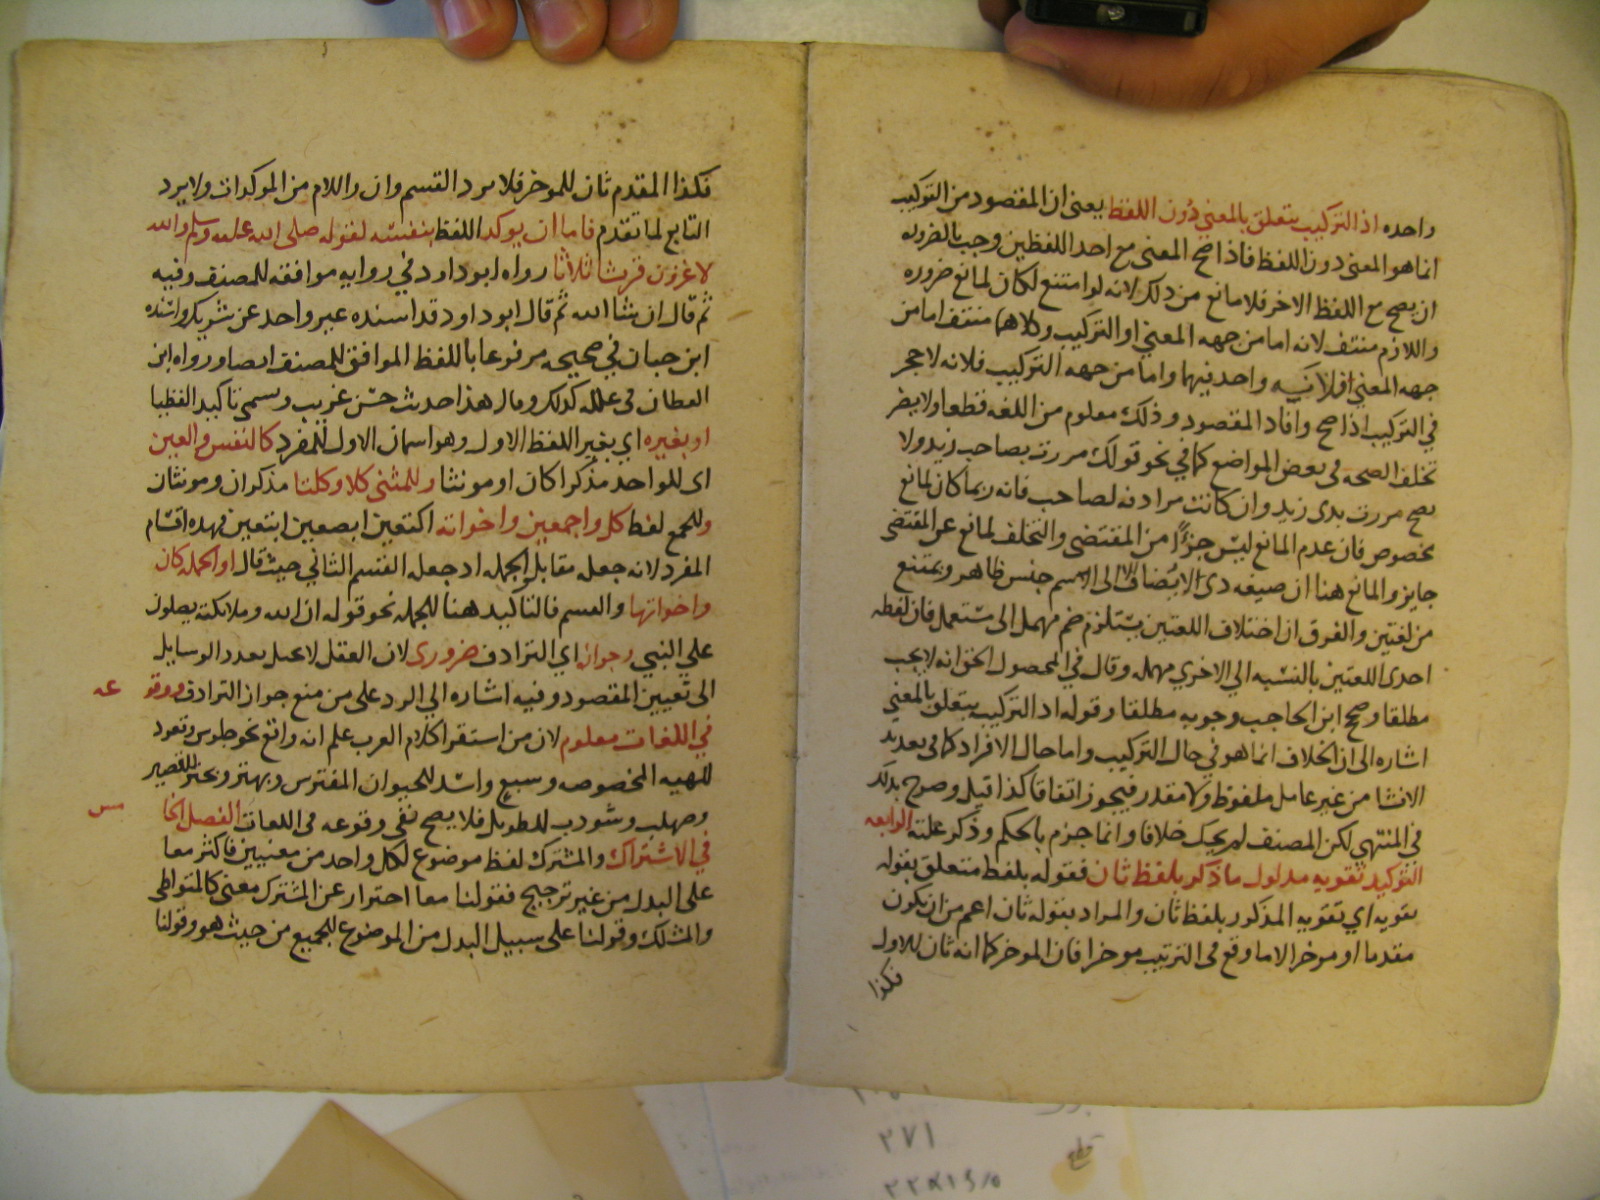 واحده اذ التركيب يتعلق بالمعني دون اللفظ يعني ان المقصود من التركيب
انما هو المعني دون اللفظ فاذا صح المعني مع احد اللفظين وجب بالضروره
ان يصح مع اللفظ الاخر فلا مانع من ذلك لانه لو امتنع لكان لمانع ضروره
واللازم منتف لانه اما من جهه المعني او التركيب وكلاهما منتف اما من
جهه المعني فلانه واحد فيهما واما من جهه التركيب فلانه لا حجر
في التركيب اذا صح وافاد المقصود وذلك معلوم من اللغه قطعا ولا يضر
تخلف الصحه في بعض المواضع كما في نحو قولك مررت بصاحب زيد ولا
يصح مررت بذي زيد وان كانت مرادفه لصاحب فانه ربما كان لمانع
بخصوص فان عدم المانع ليس جزءا من المقتضي والتخلف لمانع عن المقتضي
جايز والمانع هنا ان صيغه ذي لا يضاف الا الى اسم جنس ظاهر ويمتنع
من لغتين والفرق ان اختلاف اللغتين يستلزم ضم مهمل الى مستعمل فان لفظه
احدى اللغتين بالنسبه الي الاخري مهمله وقال في المحصول الحق انه لا يجب
مطلقا وصحح ابن الحاجب وجوبه مطلقا وقوله اذ التركيب يتعلق بالمعني
اشاره الى ان الخلاف انما هو في حال التركيب واما حال الافراد كما في تعديد
الاشيا من غير عامل ملفوظ ولا مقدر فيجوز اتفاقا كذا قيل وصرح بذلك
في المنتهي لكن المصنف لم يحك خلافا وانما جزم بالحكم وذكر علته الرابعه
التوكيد تقويه مدلول ما ذكر بلفظ ثان فقوله بلفظ متعلق بقوله
تقويه اي تقويه المذكور بلفظ ثان والمراد بقوله ثان اعم من ان يكون
مقدما او موخرا لا ما وقع في الترتيب موخرا فان الموخر كما انه ثان للاول
فكذا
فكذا المقدم ثان للموخر فلا يرد القسم وان واللام من الموكدات ولا يرد
التابع لما تقدم فاما ان يوكد اللفظ بنفسه لقوله صلى الله عليه وسلم والله
لاغزون قريشا ثلاثا رواه ابو داود في روايه موافقه للمصنف وفيه
ثم قال ان شا الله ثم قال ابو داود قد اسنده غير واحد عن شريك واسنده
ابن حبان في صحيحه مرفوعا باللفظ الموافق للمصنف ايضا ورواه ابن
القطان في علله كذلك وقال هذا حديث حسن غريب ويسمى تاكيدا لفظيا
او بغيره اي بغير اللفظ الاول وهو اسمان الاول للمفرد كالنفس والعين
اى للواحد مذكرا كان او مونثا وللمثنى كلا وكلتا مذكران ومونثان
وللجمع لفظ كل واجمعين واخواته اكتعين ابصعين ابتعين فهذه اقسام
المفرد لانه جعله مقابل الجمله اذ جعل القسم الثاني حيث قال او الجمله كان
واخواتها والقسم فالتاكيد هنا للجمله نحو قوله ان الله وملائكته يصلون
علي النبي وجوازه اي الترادف ضروري لان العقل لا يحيل تعدد الوسايل
الى تعيين المقصود وفيه اشاره الي الرد على من منع جواز الترادف ووقو عه
في اللغات معلوم لان من استقرا كلام العرب علم انه واقع نحو جلوس وقعود
للهيه المخصوصه وسبع واسد للحيوان المفترس وبهتر وبحتر للقصير
وصهلب وشوذب للطويل فلا يصح نفي وقوعه في اللغات الفصل الخا مس
في الاشتراك والمشترك لفظ موضوع لكل واحد من معنيين فاكثر معا
على البدل من غير ترجيح فقولنا معا احتراز عن المشترك معنى كالمتواطي
والمشكك وقولنا على سبيل البدل من الموضوع للجميع من حيث هو وقولنا
٢٧١